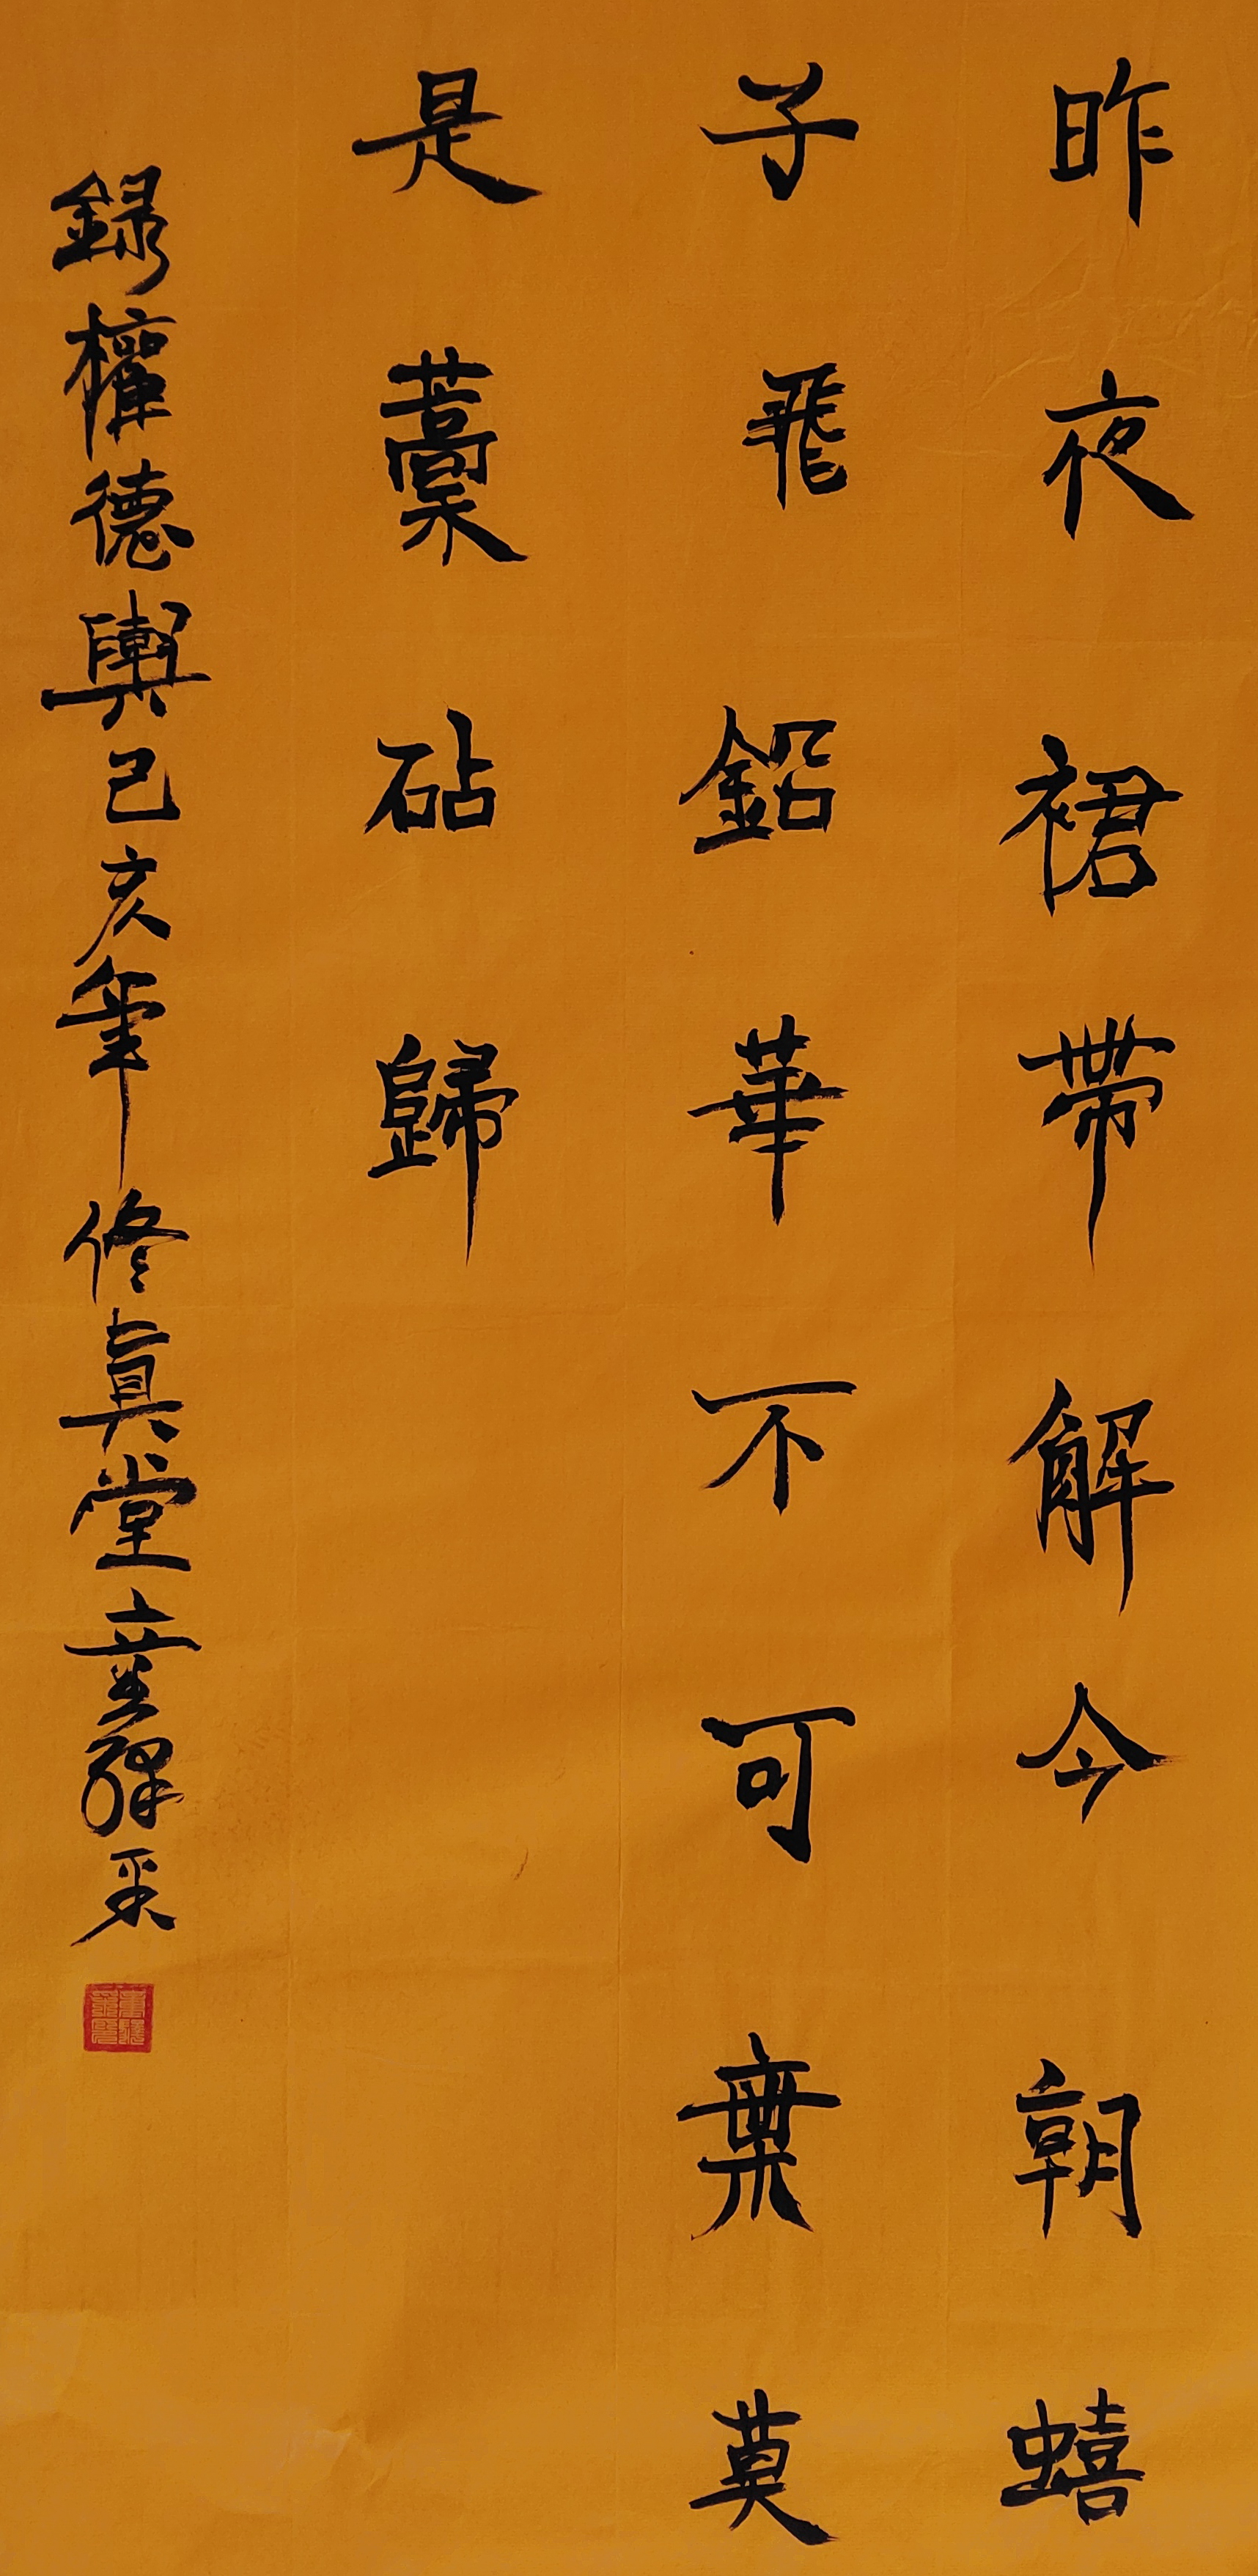 昨夜裙帶解今朝蟢
子飛鉛華不可棄莫
是藁砧歸
録權德輿己亥年修真堂童舜采